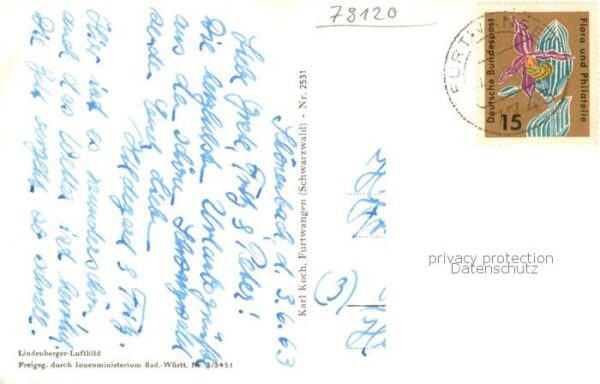 78120
Schönenbach, d. 3.6.63
Liebe Grete, Fritz & Peter!
Die herzlichsten Urlaubsgrüße
aus d. schönen Schwarzwald
senden Euch Lieben
Hildegard & Fritz.
Hier ist es wunderschön
und das Wetter ist herrlich.
Die Zeit vergeht so schnell.
Lindenberger-Luftbild
Freigeg. durch Innenministerium Bad.-Württ. Nr. 3/5451
Karl Koch, Furtwangen (Schwarzwald) - Nr. 2531
(3)
FURTWANGEN
Deutsche Bundespost
Flora und Philatelie
15
privacy protection
Datenschutz